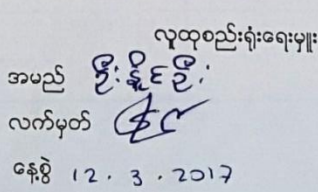 လူထုစည်းရုံးရေးမှူး
အမည် ဦးနိုင်ဦး
လက်မှတ်
နေ့စွဲ 12.3.2017